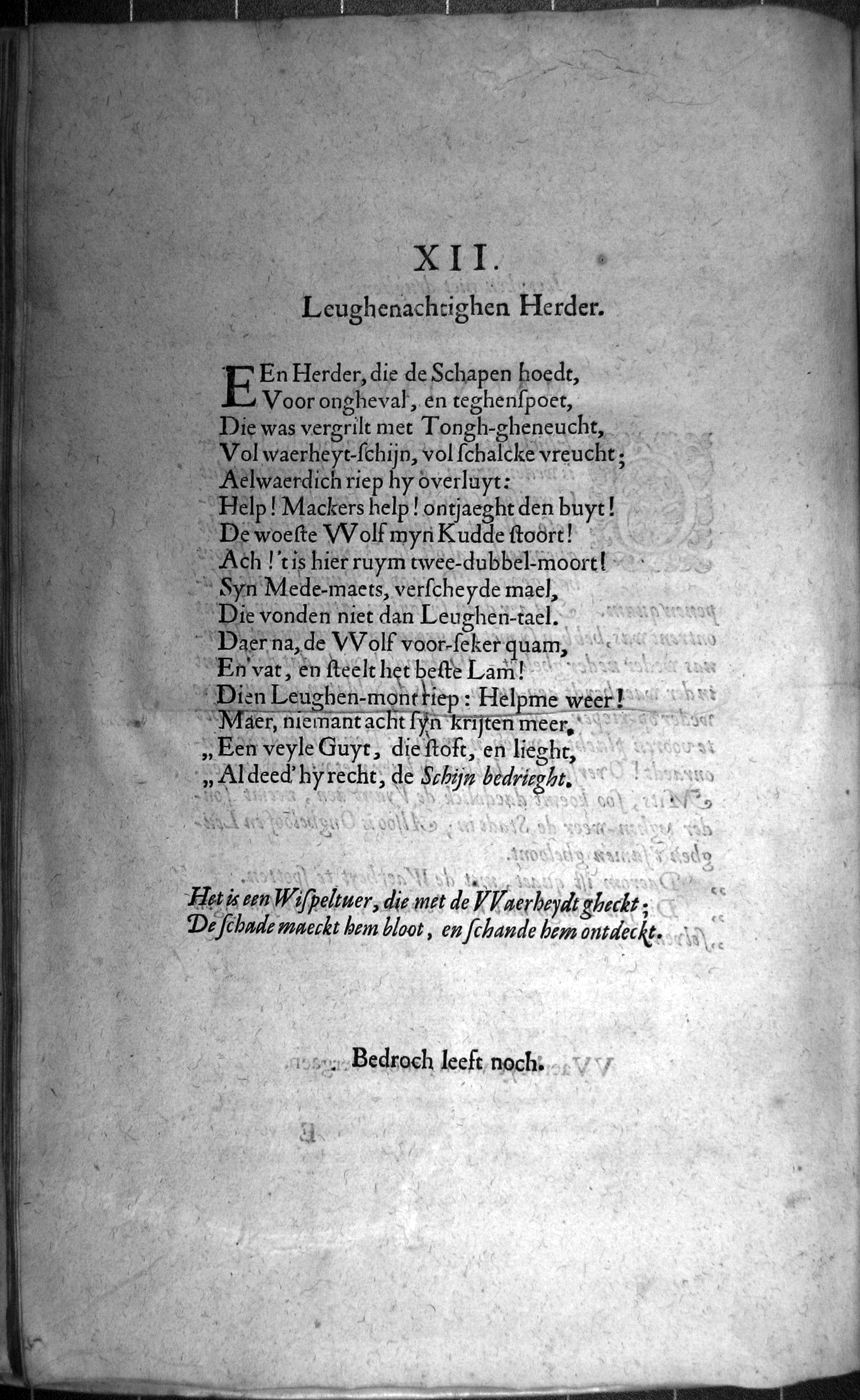 XII.
Leughenachtighen Herder.
EEn Herder, die de Schapen hoedt,
Voor ongheval, en teghenſpoet,
Die was vergrilt met Tongh-gheneucht,
Vol waerheyt-ſchijn, vol ſchalcke vreucht;
Aelwaerdich riep hy overluyt:
Help! Mackers help! ontjaeght den buyt!
De woeſte VVolf myn Kudde ſtoort!
Ach! 't is hier ruym twee-dubbel-moort!
Syn Mede-maets, verſcheyde mael,
Die vonden niet dan Leughen-tael.
Daer na, de VVolf voor-ſeker quam,
En vat, en ſteelt het beſte Lam!
Dien Leughen-mont riep: Helpme weer!
Maer, niemant acht ſyn krijten meer.
„Een veyle Guyt, die ſtoft, en lieght,
„Al deed' hy recht, de Schijn bedrieght.
Het is een Wiſpeltuer, die met de VVaerheydt gheckt;
De ſchade maeckt hem bloot, en ſchande hem ontdeckt.
Bedroch leeft noch.